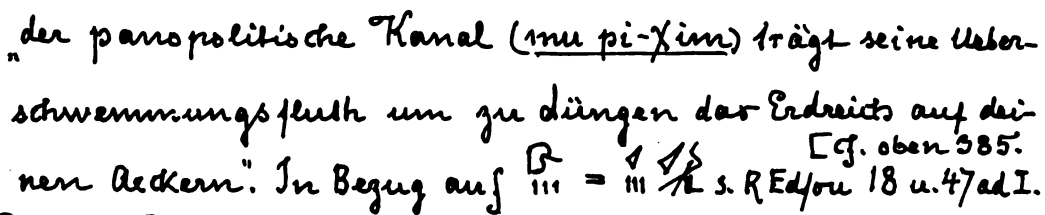 „der panopolitische Kanal (mu pi-χim) trägt seine Ueber-
schwemmungsfluth um zu düngen das Erdreich auf dei-
[cf. oben 985.
nen Aeckern“. In Bezug auf = s. R Edfou 18 u. 47 ad I.